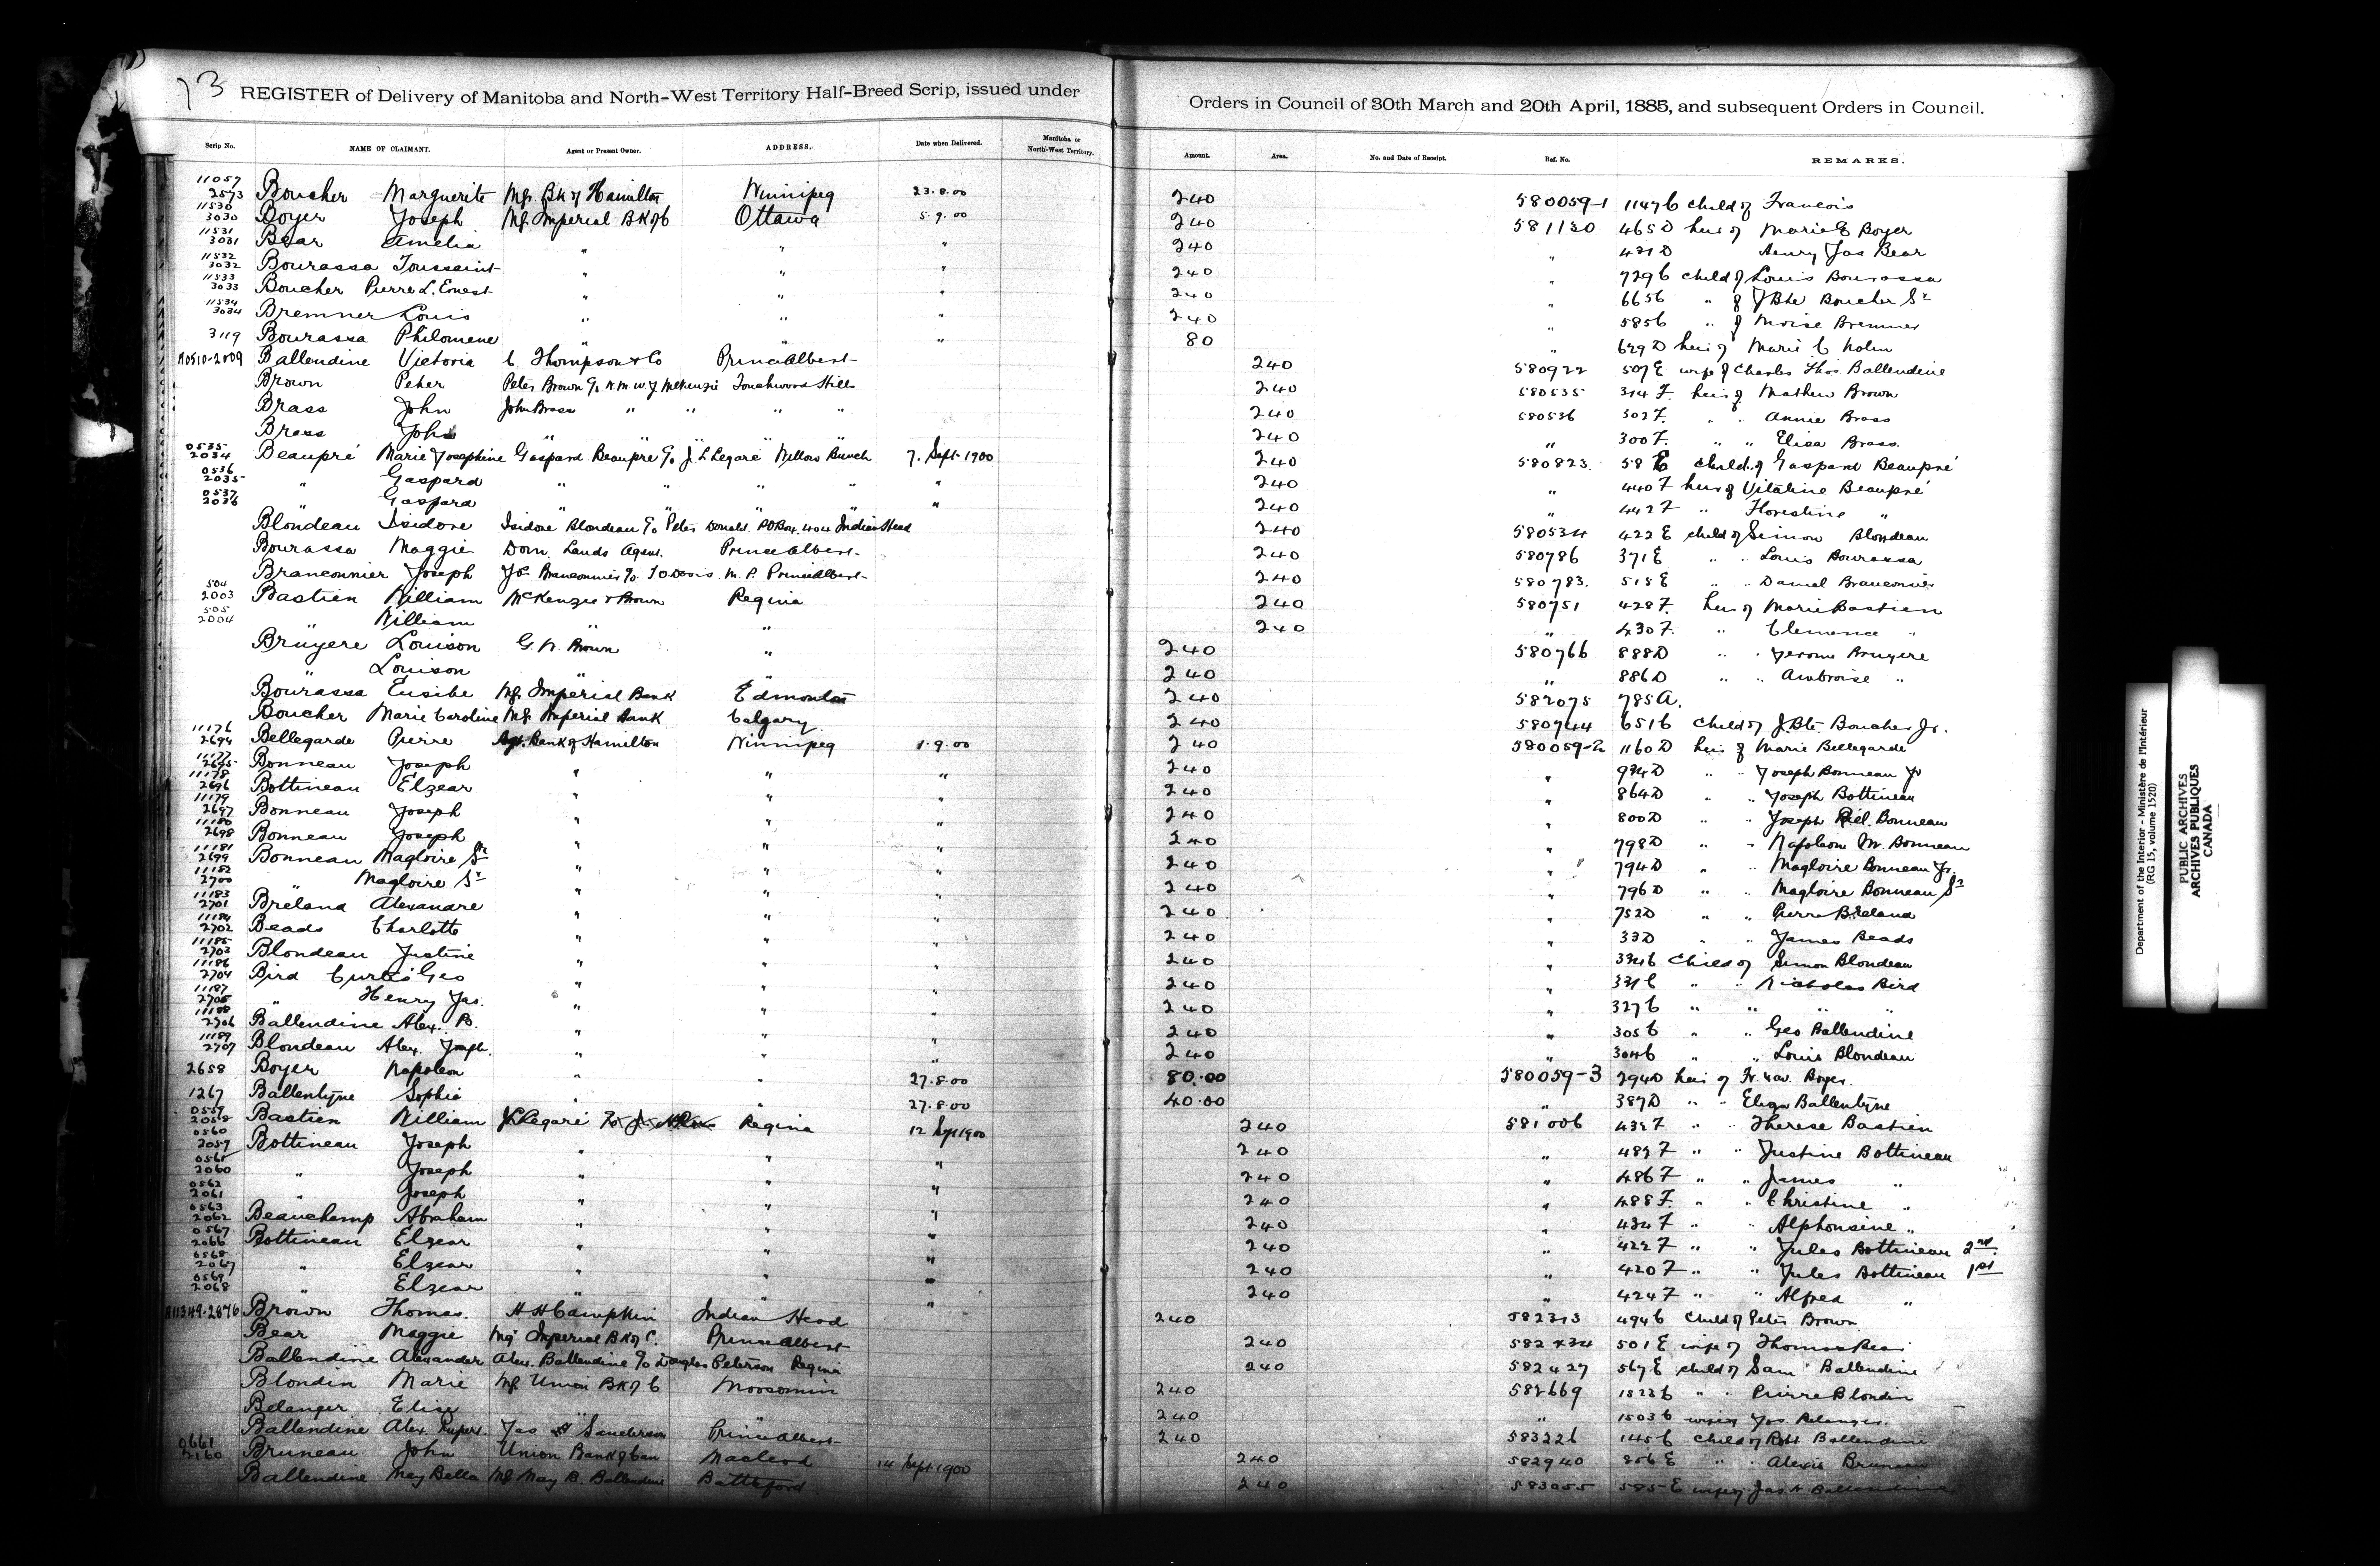 73 REGISTER of Delivery of Manitoba and North-West Territory Half-Breed Scrip, issued under Orders in Council of 30th March and 20th April, 1885, and subsequent Orders in Council.
Scrip No. NAME OF CLAIMANT. Agent or Present Owner. ADDRESS. Date when Delivered. Manitoba or North-West Territory. Amount. Area. No. and Date of Receipt. Ref. No. REMARKS.
11057 2573 Boucher Marguerite Mgr. Bk of Hamilton Winnipeg 23.8.00 240 580059-1 1147C child of Francois
11530 3030 Boyer Joseph Mgr Imperial Bk of C Ottawa 5.9.00 240 581130 465D heir of Marie E Boyer
11531 3031 Bear Amelia " " " 240 " 431D Henry Jas Bear
11532 3032 Bourassa Toussaint " " " 240 " 729C child of Louis Bourassa
11533 3033 Boucher Pierre L. Ernest " " " 240 " 665C " of J Bte Boucher Sr
11534 3034 Bremner Louis " " " 240 " 585C " of Moise Bremner
3119 Bourassa Philomene " " " 80 " 629D heir of Marie C Nolin
A0510-2009 Ballendine Victoria C Thompson & Co Prince Albert 240 580922 507E wife of Charles Thos Ballendine
Brown Peter Peter Brown c/o N M W J McKenzie Touchwood Hills 240 580535 314F heir of Mathew Brown
Brass John John Brass " " " " 240 580536 302F " " Annie Brass
Brass John " " " " 240 " 300F " " Elisa Brass
0535 2034 Beaupré Marie Josephine Gaspard Beaupre c/o J. L Legaré Willow Bunch 7. Sept 1900 240 580823 58E child of Gaspard Beaupré
0536 2035 " Gaspard " " " " " 240 " 440F heir of Vitaline Beaupré
0537 2036 " Gaspard " " " " " 240 " 442F " Florestine "
Blondeau Isidore Isidore Blondeau c/o Peter Donald PO Box 404 Indian Head 240 580534 422E child of Simon Blondeau
Bourassa Maggie Dom. Lands Agent. Prince Albert 240 580786 371E " " Louis Bourassa
Branconnier Joseph Jos Branconnier c/o T O Davis M.P. Prince Albert 240 580783 515E " " Daniel Branconnier
504 2003 Bastien William McKenzie & Brown Regina 240 580751 428F heir of Marie Bastien
505 2004 " William " " 240 " 430F " Clemence "
Bruyere Louison G. W. Brown " 240 580766 888D " " Jerome Bruyere
" Louison " " 240 " 886D " " Ambroise "
Bourassa Eusibe Mgr Imperial Bank Edmonton 240 582075 785A.
Boucher Marie Caroline Mgr Imperial Bank Calgary 240 580744 651C child of J. Bte Boucher Jr.
11176 2694 Bellegarde Pierre Agt. Bank of Hamilton Winnipeg 1.9.00 240 580059-2 1160D heir of Marie Bellegarde
11177 2695 Bonneau Joseph " " " 240 " 934D " " Joseph Bonneau Jr
11178 2696 Bottineau Elzear " " " 240 " 864D " " Joseph Bottineau
11179 2697 Bonneau Joseph " " " 240 " 800D " " Joseph Riel Bonneau
11180 2698 Bonneau Joseph " " " 240 " 798D " " Napoleon M. Bonneau
11181 2699 Bonneau Magloire Sr " " " 240 " 794D " " Magloire Bonneau Jr.
11182 2700 " Magloire Sr " " " 240 " 796D " " Magloire Bonneau Sr
11183 2701 Breland Alexandre " " " 240 " 752D " " Pierre Breland
11184 2702 Beads Charlotte " " " 240 " 33D " " James Beads
11185 2703 Blondeau Justine " " " 240 " 334C child of Simon Blondeau
11186 2704 Bird Curtis Geo " " " 240 " 331C " " Nicholas Bird
11187 2705 " Henry Jas. " " " 240 " 327C " " " "
11188 2706 Ballendine Alex. B. " " " 240 " 305C " " Geo Ballendine
11189 2707 Blondeau Alex. Joseph " " " 240 " 304C " " Louis Blondeau
2658 Boyer Napoleon " " 27.8.00 80.00 580059-3 294D heir of Boyer.
1267 Ballentyne Sophie " " 27.8.00 40.00 387D " " Eliza Ballentyne
0559 2058 Bastien William J L Legaré Regina 12 Sept 1900 240 581006 432F " " Therese Bastien
0560 2059 Bottineau Joseph " " " 240 " 482F " " Justine Bottineau
0561 2060 " Joseph " " " 240 " 486F " " James "
0562 2061 " Joseph " " " 240 " 488F " " Christine "
0563 2062 Beauchamp Abraham " " " 240 " 434F " " Alphonsine "
0567 2066 Bottineau Elzear " " " 240 " 422F " " Jules Bottineau 2nd.
0568 2067 " Elzear " " " 240 " 420F " " Jules Bottineau 1st
0569 2068 " Elzear " " " 240 424F " " Alfred "
A11349-2876 Brown Thomas. H H Campkin Indian Head 240 582313 494C child of Peter Brown
Bear Maggie Mgr Imperial Bk of C. Prince Albert 240 582434 501E wife of Thomas Bear
Ballendine Alexander Alex. Ballendine c/o Douglas Peterson Regina 240 582427 567E child of Sam Ballendine
Blondin Marie Mgr Union Bk of C Moosomin 240 582669 1523C " " Pierre Blondin
Belanger Elise " " 240 " 1503C wife of Jos. Belanger.
Ballendine Alex. Rupert. Jas H Sanderson Prince Albert 240 583226 145C child of Robt Ballendine
0661 2160 Bruneau John Union Bank of Can Macleod 14 Sept 1900 240 582940 856E " " Alexis Bruneau
Ballendine May Bella May B. Ballendine Battleford 240 583055 585E wife of Jas A Ballendine
Department of the Interior - Ministère de l'Intérieur
(RG 15, volume 1520)
PUBLIC ARCHIVES
ARCHIVES PUBLIQUES
CANADA